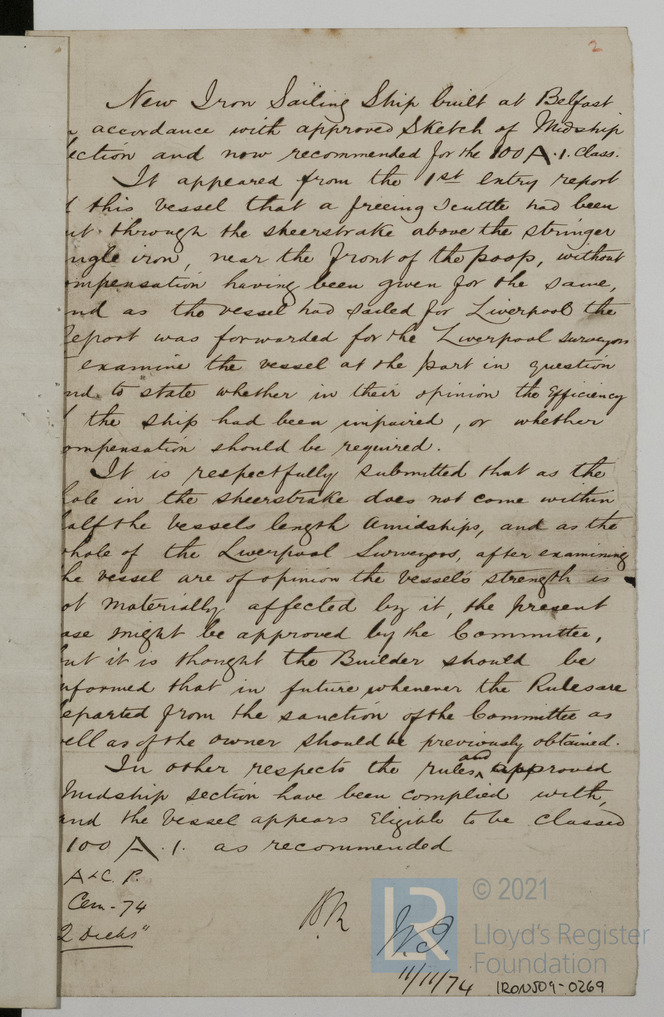 2
New Iron Sailing Ship built at Belfast
accordance with approved Sketch of Midship
ection and now recommended for the 100 A.1. Class.
It appeared from the 1st entry report
this vessel that a freeing Scuttle had been
ut through the sheerstrake above the stringer
ngle iron, near the front of the poop, without
ompensation having been given for the same,
nd as the vessel had sailed for Liverpool the
Report was forwarded for the Liverpool surveyors
examine the vessel at the part in question
nd to state whether in their opinion the Efficiency
the ship had been impaired, or whether
ompensation should be required.
It is respectfully submitted that as the
hole in the sheerstrake does not come within
half the vessels length amidships, and as the
whole of the Liverpool Surveyors, after examining
he vessel are of opinion the vessel's strength is
ot materially affected by it, the present
ase might be approved by the Committee,
ut it is thought the Builder should be
nformed that in future whenever the Rules are
eparted from the sanction of the Committee as
ell as of the owner should be previously obtained.
In other respects the rules and approved
Midship section have been complied with,
and the Vessel appears Eligible to be classed
100 A.1. as recommended
A & C. P.
Cem - 74
2 Decks"
W.I.
11/11/74
IRON509-0269
LR
© 2021
Lloyd's Register
Foundation